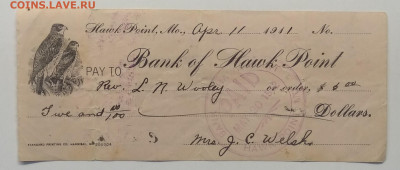 COINS.LAVE.RU
Hawk Point, Mo., Apr 11 1911 No.
Bank of Hawk Point
PAY TO
Rev. L. N. Wooley or order, $ 5.00
Five and 00/100 Dollars.
Mrs. J. C. Welsh